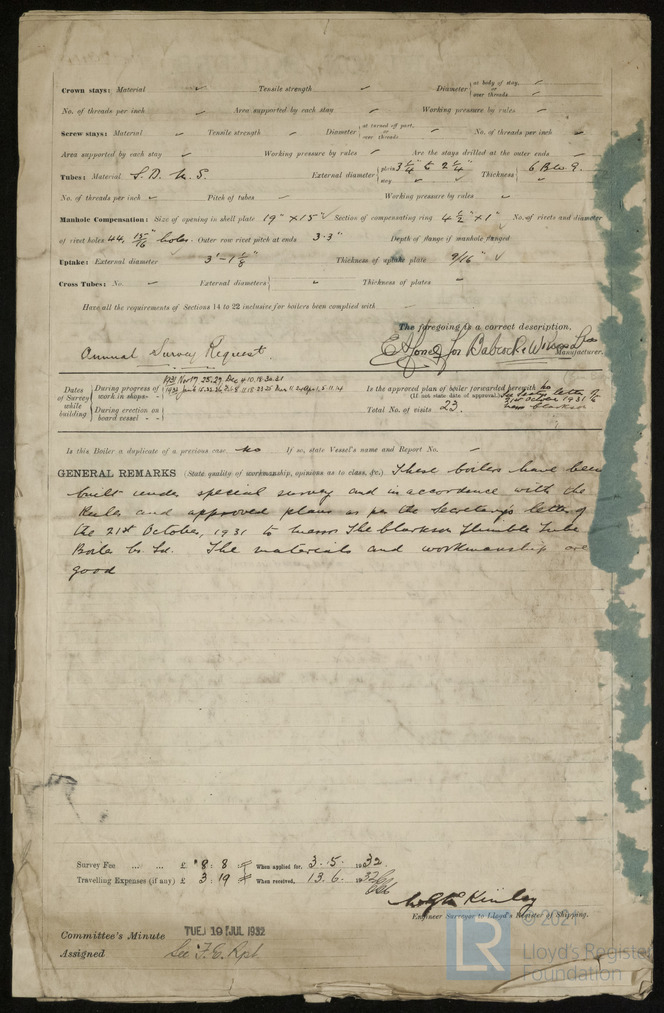 Crown stays: Material ✓ Tensile strength ✓ Diameter { at body of stay, or over threads ✓
No. of threads per inch ✓ Area supported by each stay ✓ Working pressure by rules ✓
Screw stays: Material ✓ Tensile strength ✓ Diameter { at turned off part, or over threads No. of threads per inch ✓
Area supported by each stay ✓ Working pressure by rules ✓ Are the stays drilled at the outer ends ✓
Tubes: Material S.D. External diameter { plain 3 1/4" to 2 1/4" stay ✓ Thickness 6 B.W.G.
No. of threads per inch ✓ Pitch of tubes ✓ Working pressure by rules ✓
Manhole Compensation: Size of opening in shell plate 19" x 15" ✓ Section of compensating ring 4 1/2" x 1" No. of rivets and diameter
of rivet holes 44, 15/16" holes. Outer row rivet pitch at ends 3.3" Depth of flange if manhole flanged ✓
Uptake: External diameter 3'-1 1/8" Thickness of uptake plate 9/16" ✓
Cross Tubes: No. ✓ External diameters { ✓ Thickness of plates ✓
Have all the requirements of Sections 14 to 22 inclusive for boilers been complied with
The foregoing is a correct description,
Annual Survey Request. for Babcock & Wilcox Manufacturer.
Dates of Survey while building
During progress of work in shops - - 1931 Nov 17. 25. 27. Dec 4. 10. 18. 30. 31
During erection on board vessel - -
Is the approved plan of boiler forwarded herewith No
(If not state date of approval.) See letter 21st October 1931 to Clarkson
Total No. of visits 23.
Is this Boiler a duplicate of a previous case No If so, state Vessel's name and Report No. -
GENERAL REMARKS (State quality of workmanship, opinions as to class, &c.) These boilers have been
built under special survey and in accordance with the
Rules and approved plans as per the Secretary's letter of
the 21st October, 1931 to Messrs The Clarkson Thimble Tube
Boiler Co. Ld. The materials and workmanship are
good
Survey Fee ... ... £ 8 : 8 : When applied for, 3.5. 1932
Travelling Expenses (if any) £ 3 : 19 : When received, 13.6. 1932
Engineer Surveyor to Lloyd's Register of Shipping.
Committee's Minute TUE 19 JUL 1932
Assigned See F.E. Rpt
© 2021
LR Lloyd's Register
Foundation